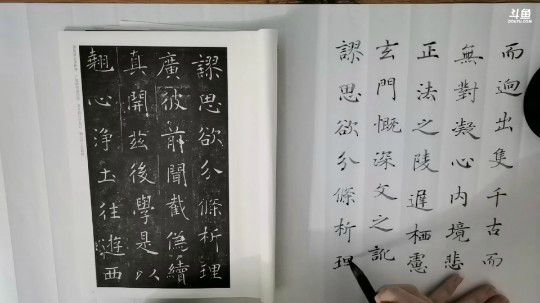 斗鱼
而迥出隻千古而
無對凝心內境悲
正法之陵遲栖慮
玄門慨深文之訛
謬思欲分條析理
謬思欲分條析理
廣彼前聞截偽續
真開茲後學是以
翹心淨土往遊西